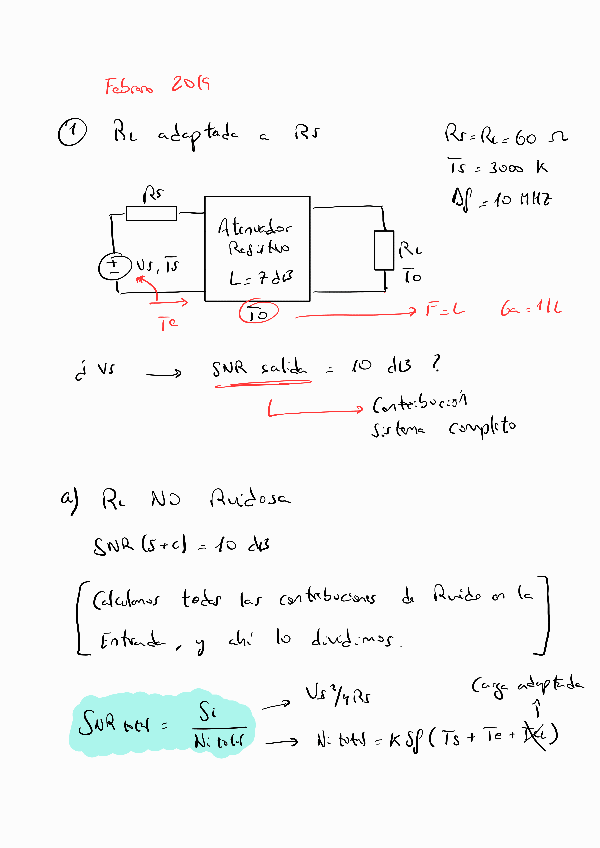 Febrero 2019
① RL adaptada a RS
RS = RL = 60 Ω
Ts = 3000 K
Δf = 10 MHz
RS
Atenuador
Resistivo
L = 7 dB
Vs, Ts
RL
To
Te
To → F = L Ga = 1/L
¿ Vs → SNR salida = 10 dB ?
Contribución
Sistema completo
a) RL NO Ruidosa
SNR (S+C) = 10 dB
[Calculamos todas las contribuciones de Ruido en la
Entrada, y ahí lo dividimos.]
Carga adaptada
SNR total = Si / Ni total
→ Vs²/4Rs
→ Ni total = K Δf ( Ts + Te +